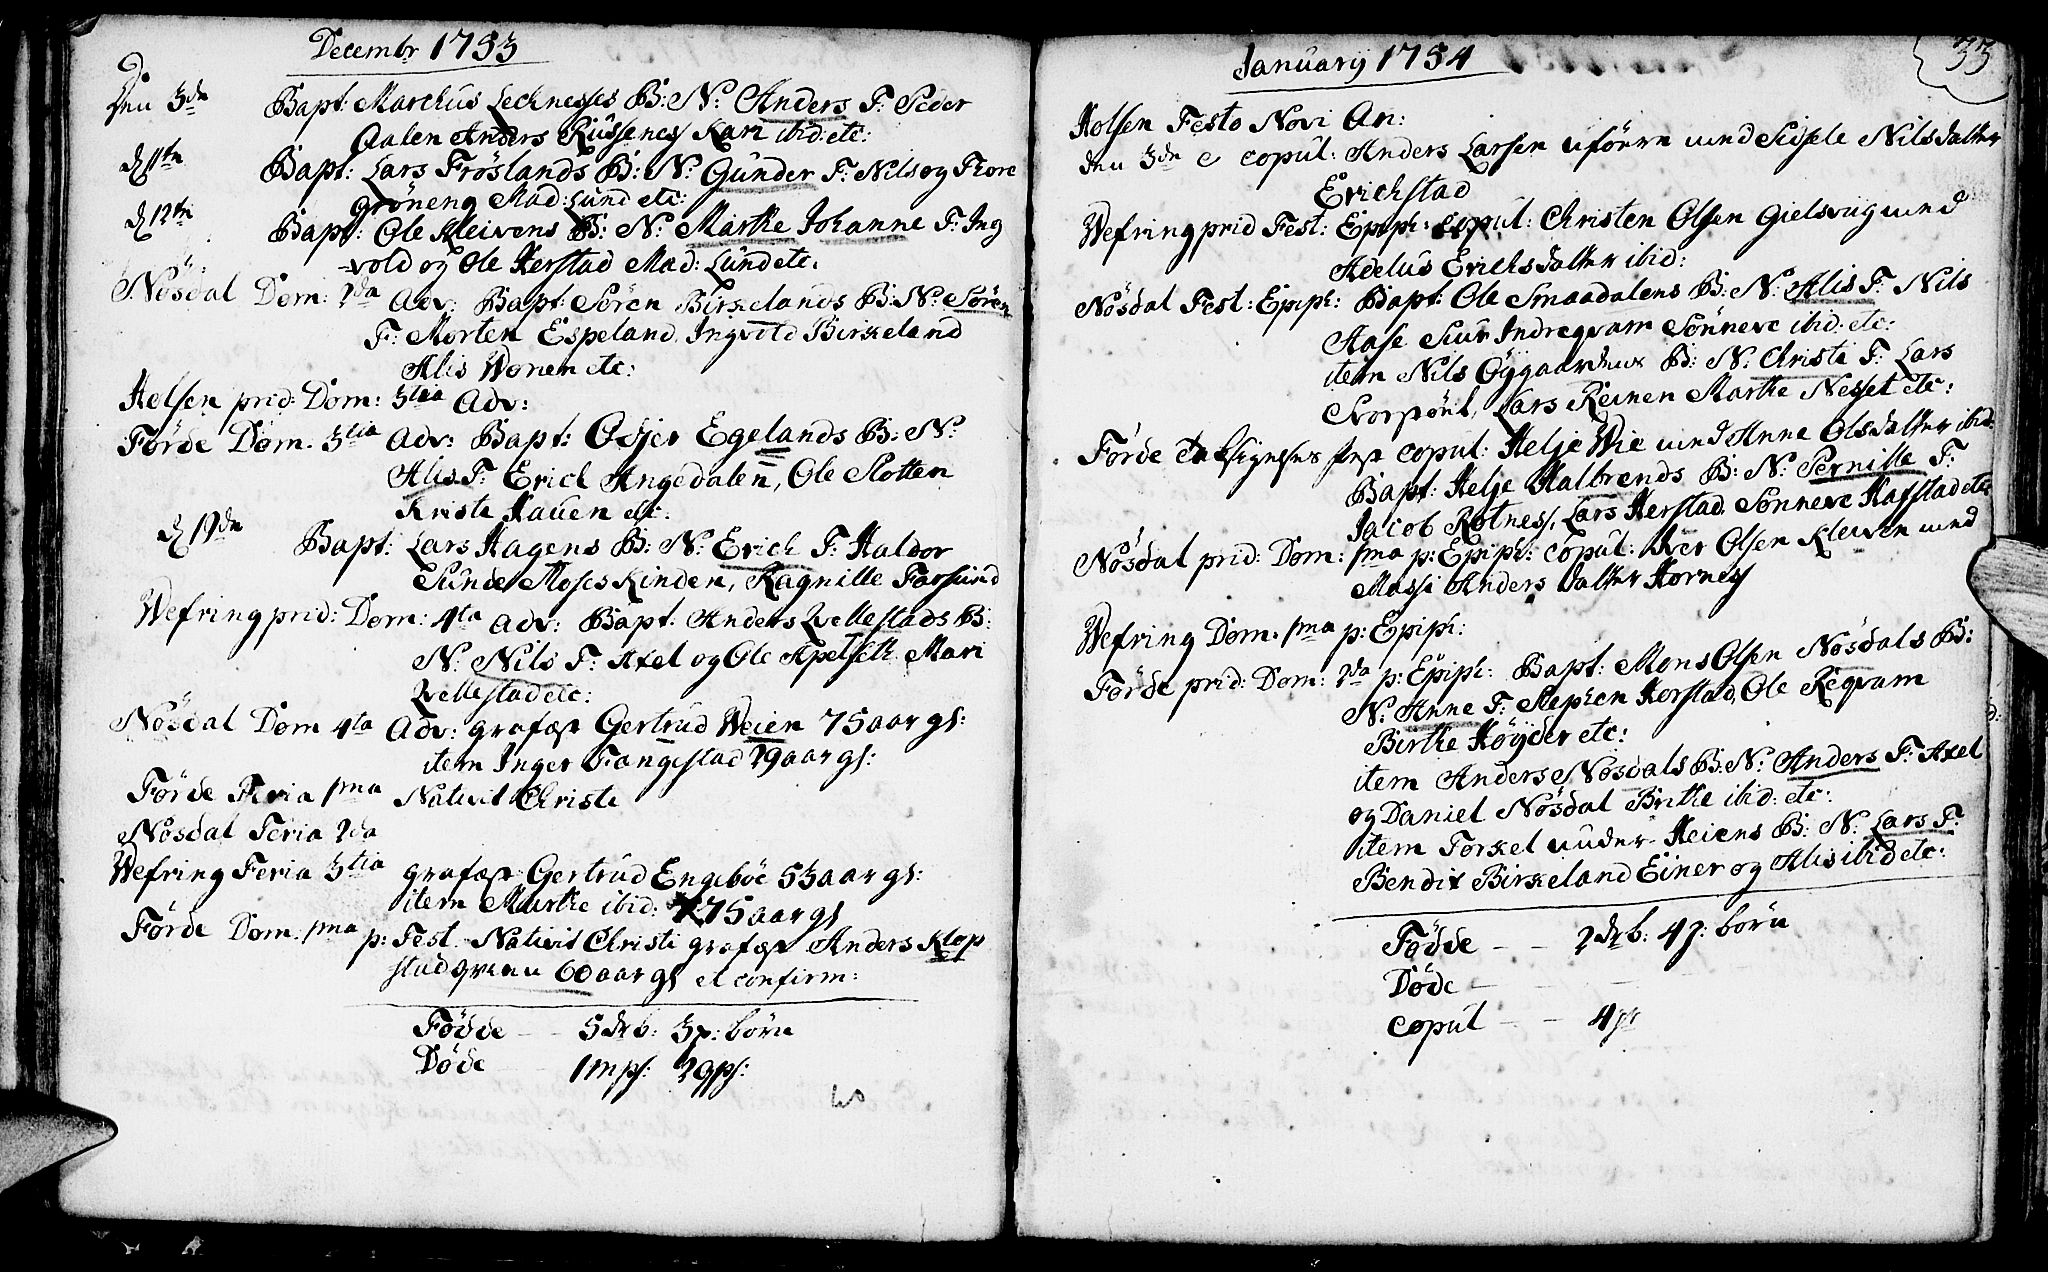 Decembr 1753
Den 3de Bapt: Marckus Lecknesses B: N: Anders F: Peder
Aalen Anders Russenes Kari ibid: etc:
d 11te Bapt: Lars Fröslands B: N: Gunder F: Nils og Thore
Gröneng Mad: Lund etc:
d 12te Bapt: Ole Kleivens B: N: Marthe Johanne F: Ing
vold og Ole Herstad Mad: Lund etc.
Nösdal Dom: 2da Adv: Bapt: Sören Birkelands B: N: Sören
F: Morten Espeland, Ingvold Birkeland
Alis Wonen etc:
Holsen prid: Dom: 3tia Adv:
Förde Dom. 3tia Adv: Bapt: Odjer Egelands B: N:
Alis F: Erick Angedalen, Ole Slotten
Kriste Hauen etc:
d 19de Bapt: Lars Hagens B: N: Erich F: Haldor
Sunde Moses Kinden, Ragnille Farsund
Wefring prid: Dom: 4ta Adv: Bapt: Anders Qvellestads B:
N: Nils F: Axel og Ole Apelseth Mari
Qvellestad etc:
Nösdal Dom 4ta Adv: grafæst Gertrud Weien 75 aar gl:
item Inger Frangestad 29 aar gl:
Förde Feria 1ma Nativit Christi
Nösdal Feria 2da
Wefring Feria 3tia grafæst Gertrud Engeböe 53 aar gl:
item Marthe ibid: 75 aar gl
Förde Dom. 1ma p: Fest. Nativit Christi grafæst Anders Klop
stadqvien 60 aar gl et confirm:
Födde - - 5 drb: 3 p: börn
Döde 1 mps: 2 gps:
33
January 1754
Holsen Festo Novi An:
den 3de e copul: Anders Larsen uförn med Sisele Nilsdatter
Erichstad
Wefring prid Fest: Epiph: copul: Christen Olsen Gielsviig med
Adelus Erichsdatter ibid:
Nösdal Fest: Epiph: Bapt: Ole Smaadalens B: N: Alis F: Nils
Aase Siur Indreqvam Sönneve ibid: etc:
item Nils Öygaardens B: N: Christi F: Lars
Lars Reinen Marthe Nesset etc:
Förde copul: Helje Wie med Anne Olsdatter ibid:
Bapt: Helje Halbrends B: N: Pernille F:
Jacob Rotness, Lars Herstad Sönneve Hafstad etc
Nösdal prid: Dom: 1ma p: Epiph: copul: Iver Olsen Kleiven med
Massi Anders datter Hornes
Wefring Dom. 1ma p: Epiph:
Förde prid: Dom: 2da p: Epiph: Bapt: Mons Olsen Nösdals B:
N: Anne F: Stephen Herstad, Ole Reqvam
Birthe Höyder etc:
item Anders Nösdals B: N: Anders F: Axel
og Daniel Nösdal Brithe ibid: etc:
item Torkel under Heiens B: N: Lars F:
Bendix Birkeland Einer og Alis ibid etc:
Födde - - 2 drb: 4 p: börn
Döde - - -
copul - - 4 pr